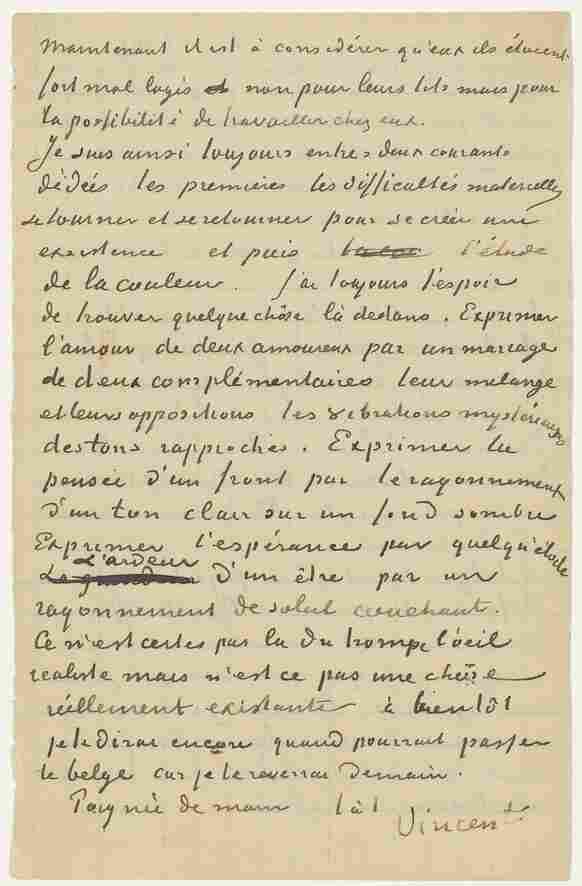 Maintenant il est à considérer qu'eux ils étaient
fort mal logés et non pour leurs lits mais pour
la possibilité de travailler chez eux.
Je suis ainsi toujours entre deux courants
d'idées les premières les difficultés materielles,
se tourner et se retourner pour se créer une
existence et puis l'étude
de la couleur. J'ai toujours l'espoir
de trouver quelque chôse là dedans. Exprimer
l'amour de deux amoureux par un mariage
de deux complémentaires leur melange
et leurs oppositions les vibrations mystérieuses
des tons rapprochés. Exprimer la
pensée d'un front par le rayonnement
d'un ton clair sur un fond sombre
Exprimer l'espérance par quelqu'étoile
L'ardeur
d'un être par un
rayonnement de soleil couchant.
Ce n'est certes pas la du trompe l'oeil
realiste mais n'est ce pas une chôse
réellement existante à bientôt
je te dirai encore quand pourrait passer
le belge car je le reverrai demain.
Poignée de main t.à.t.
Vincent